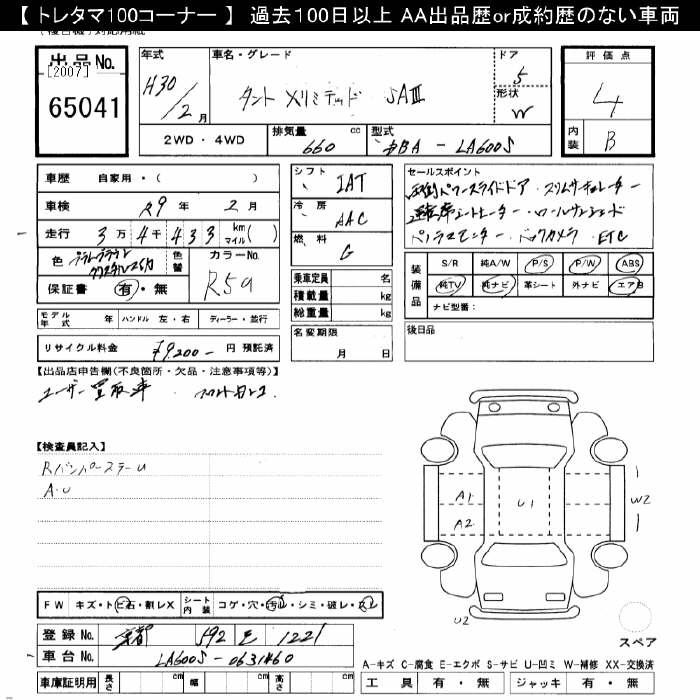 【トレタマ100コーナー】 過去100日以上 AA出品歴or成約歴のない車両
出品No.
[2007]
65041
年式
H30/2月
車名・グレード
タント Xリミテッド SAⅢ
ドア
5
形状
W
2WD・4WD
排気量 660 cc
型式 DBA-LA600S
評価点
4
内装
B
車歴 自家用・( )
車検 29年 2月
走行 3万4千433 km マイル( )
色 プラムブラウン クリスタルマイカ
色替
カラーNo.
R59
保証書 有・無
シフト IAT
冷房 AAC
燃料 G
セールスポイント
両側パワースライドドア・スリムサーキュレーター
運転席シートヒーター・ロールサンシェード
パノラマモニター・バックカメラ ETC
装備品
S/R 純A/W P/S P/W ABS
純TV 純ナビ 革シート 外ナビ エアB
ナビ型番:
乗車定員 名
積載量 kg
総重量 kg
モデル年式 年 ハンドル 左・右 ディーラー・並行
名変期限 月 日
後日品
リサイクル料金 ¥9,200- 円 預託済
【出品店申告欄(不良箇所・欠品・注意事項等)】
ユーザー買取車
【検査員記入】
RバンパーステーU
A・U
A1
A2
U1
W2
U2
FW キズ・トビ石・割レX
シート内装 コゲ・穴・汚レ・シミ・破レ・スレ
登録No. 京都 592 E 1221
車台No. LA600S-0631460
車庫証明用 長さ cm 幅 cm 高さ cm
スペア
A-キズ C-腐食 E-エクボ S-サビ U-凹ミ W-補修 XX-交換済
工具 有・無 ジャッキ 有・無